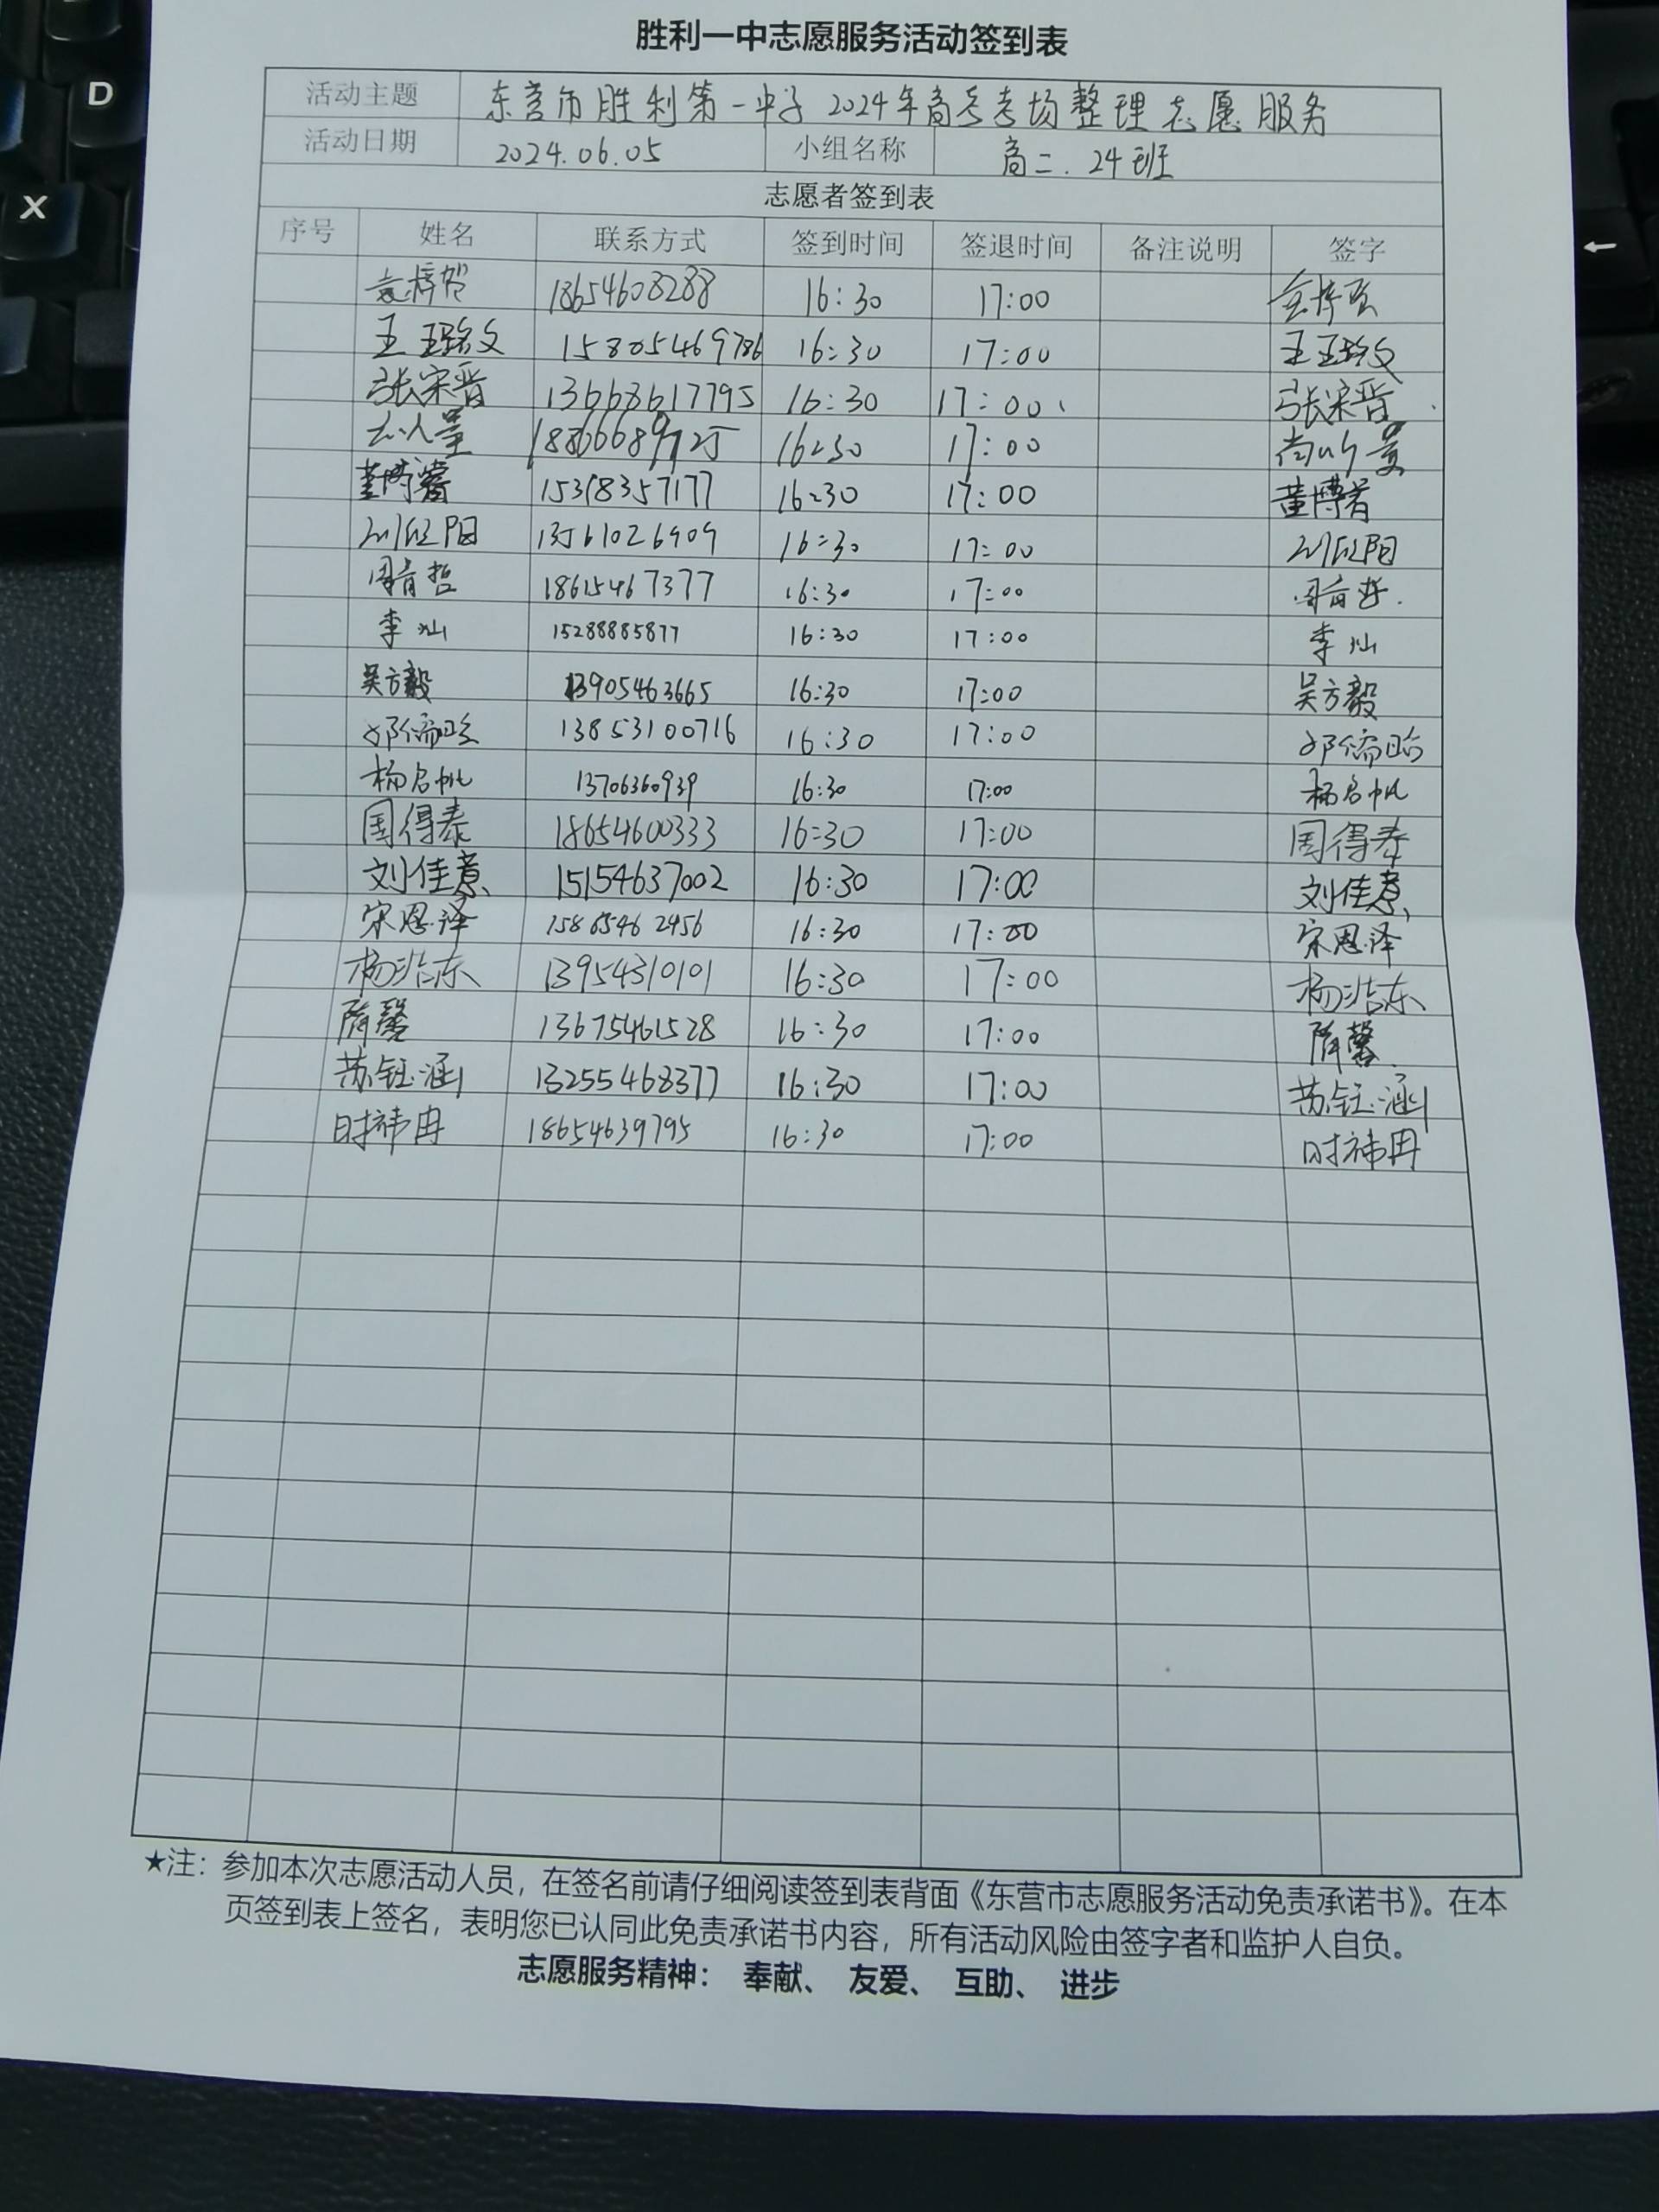 胜利一中志愿服务活动签到表
活动主题 东营市胜利第一中学2024年高考考场整理志愿服务
活动日期 2024.06.05 小组名称 高二.24班
志愿者签到表
序号 姓名 联系方式 签到时间 签退时间 备注说明 签字
18654608288 16:30 17:00
15805469786 16:30 17:00
张宋晋 13668617795 16:30 17:00 张宋晋
16:30 17:00
董博睿 15318357177 16:30 17:00 董博睿
刘欣阳 13561026909 16:30 17:00 刘欣阳
周育哲 18615467377 16:30 17:00 周育哲
李灿 15288885877 16:30 17:00 李灿
吴方毅 13905463665 16:30 17:00 吴方毅
13853100716 16:30 17:00
杨名帆 13706360939 16:30 17:00 杨名帆
周得泰 18654600333 16:30 17:00 周得泰
刘佳意 15154637002 16:30 17:00 刘佳意
宋恩泽 15865462456 16:30 17:00 宋恩泽
杨浩东 13954310101 16:30 17:00 杨浩东
隋馨 13675461528 16:30 17:00 隋馨
苏钰涵 13255468377 16:30 17:00 苏钰涵
时祎冉 18654639795 16:30 17:00 时祎冉
★注：参加本次志愿活动人员，在签名前请仔细阅读签到表背面《东营市志愿服务活动免责承诺书》。在本
页签到表上签名，表明您已认同此免责承诺书内容，所有活动风险由签字者和监护人自负。
志愿服务精神： 奉献、 友爱、 互助、 进步
D
X
←